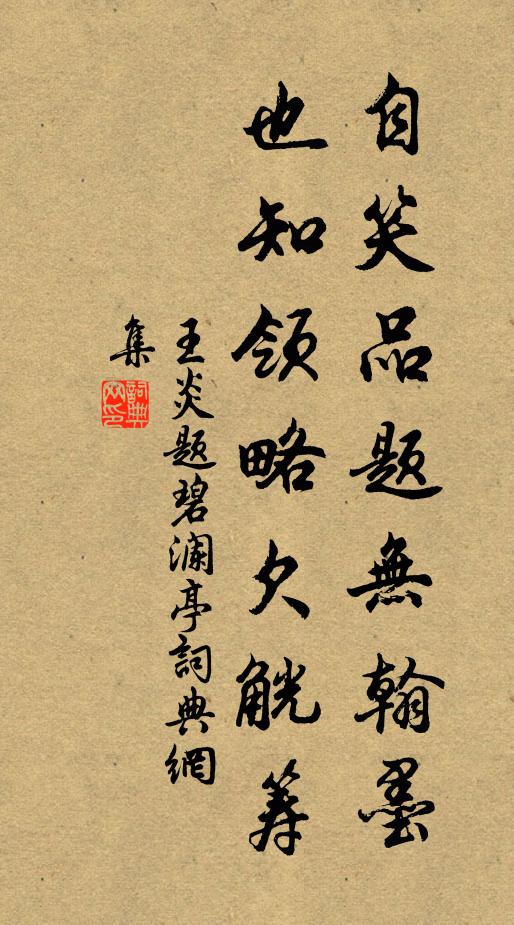 自笑品題無翰墨
也知領略欠觥筹
王炎題碧瀾亭詞典網
集
詞典网印